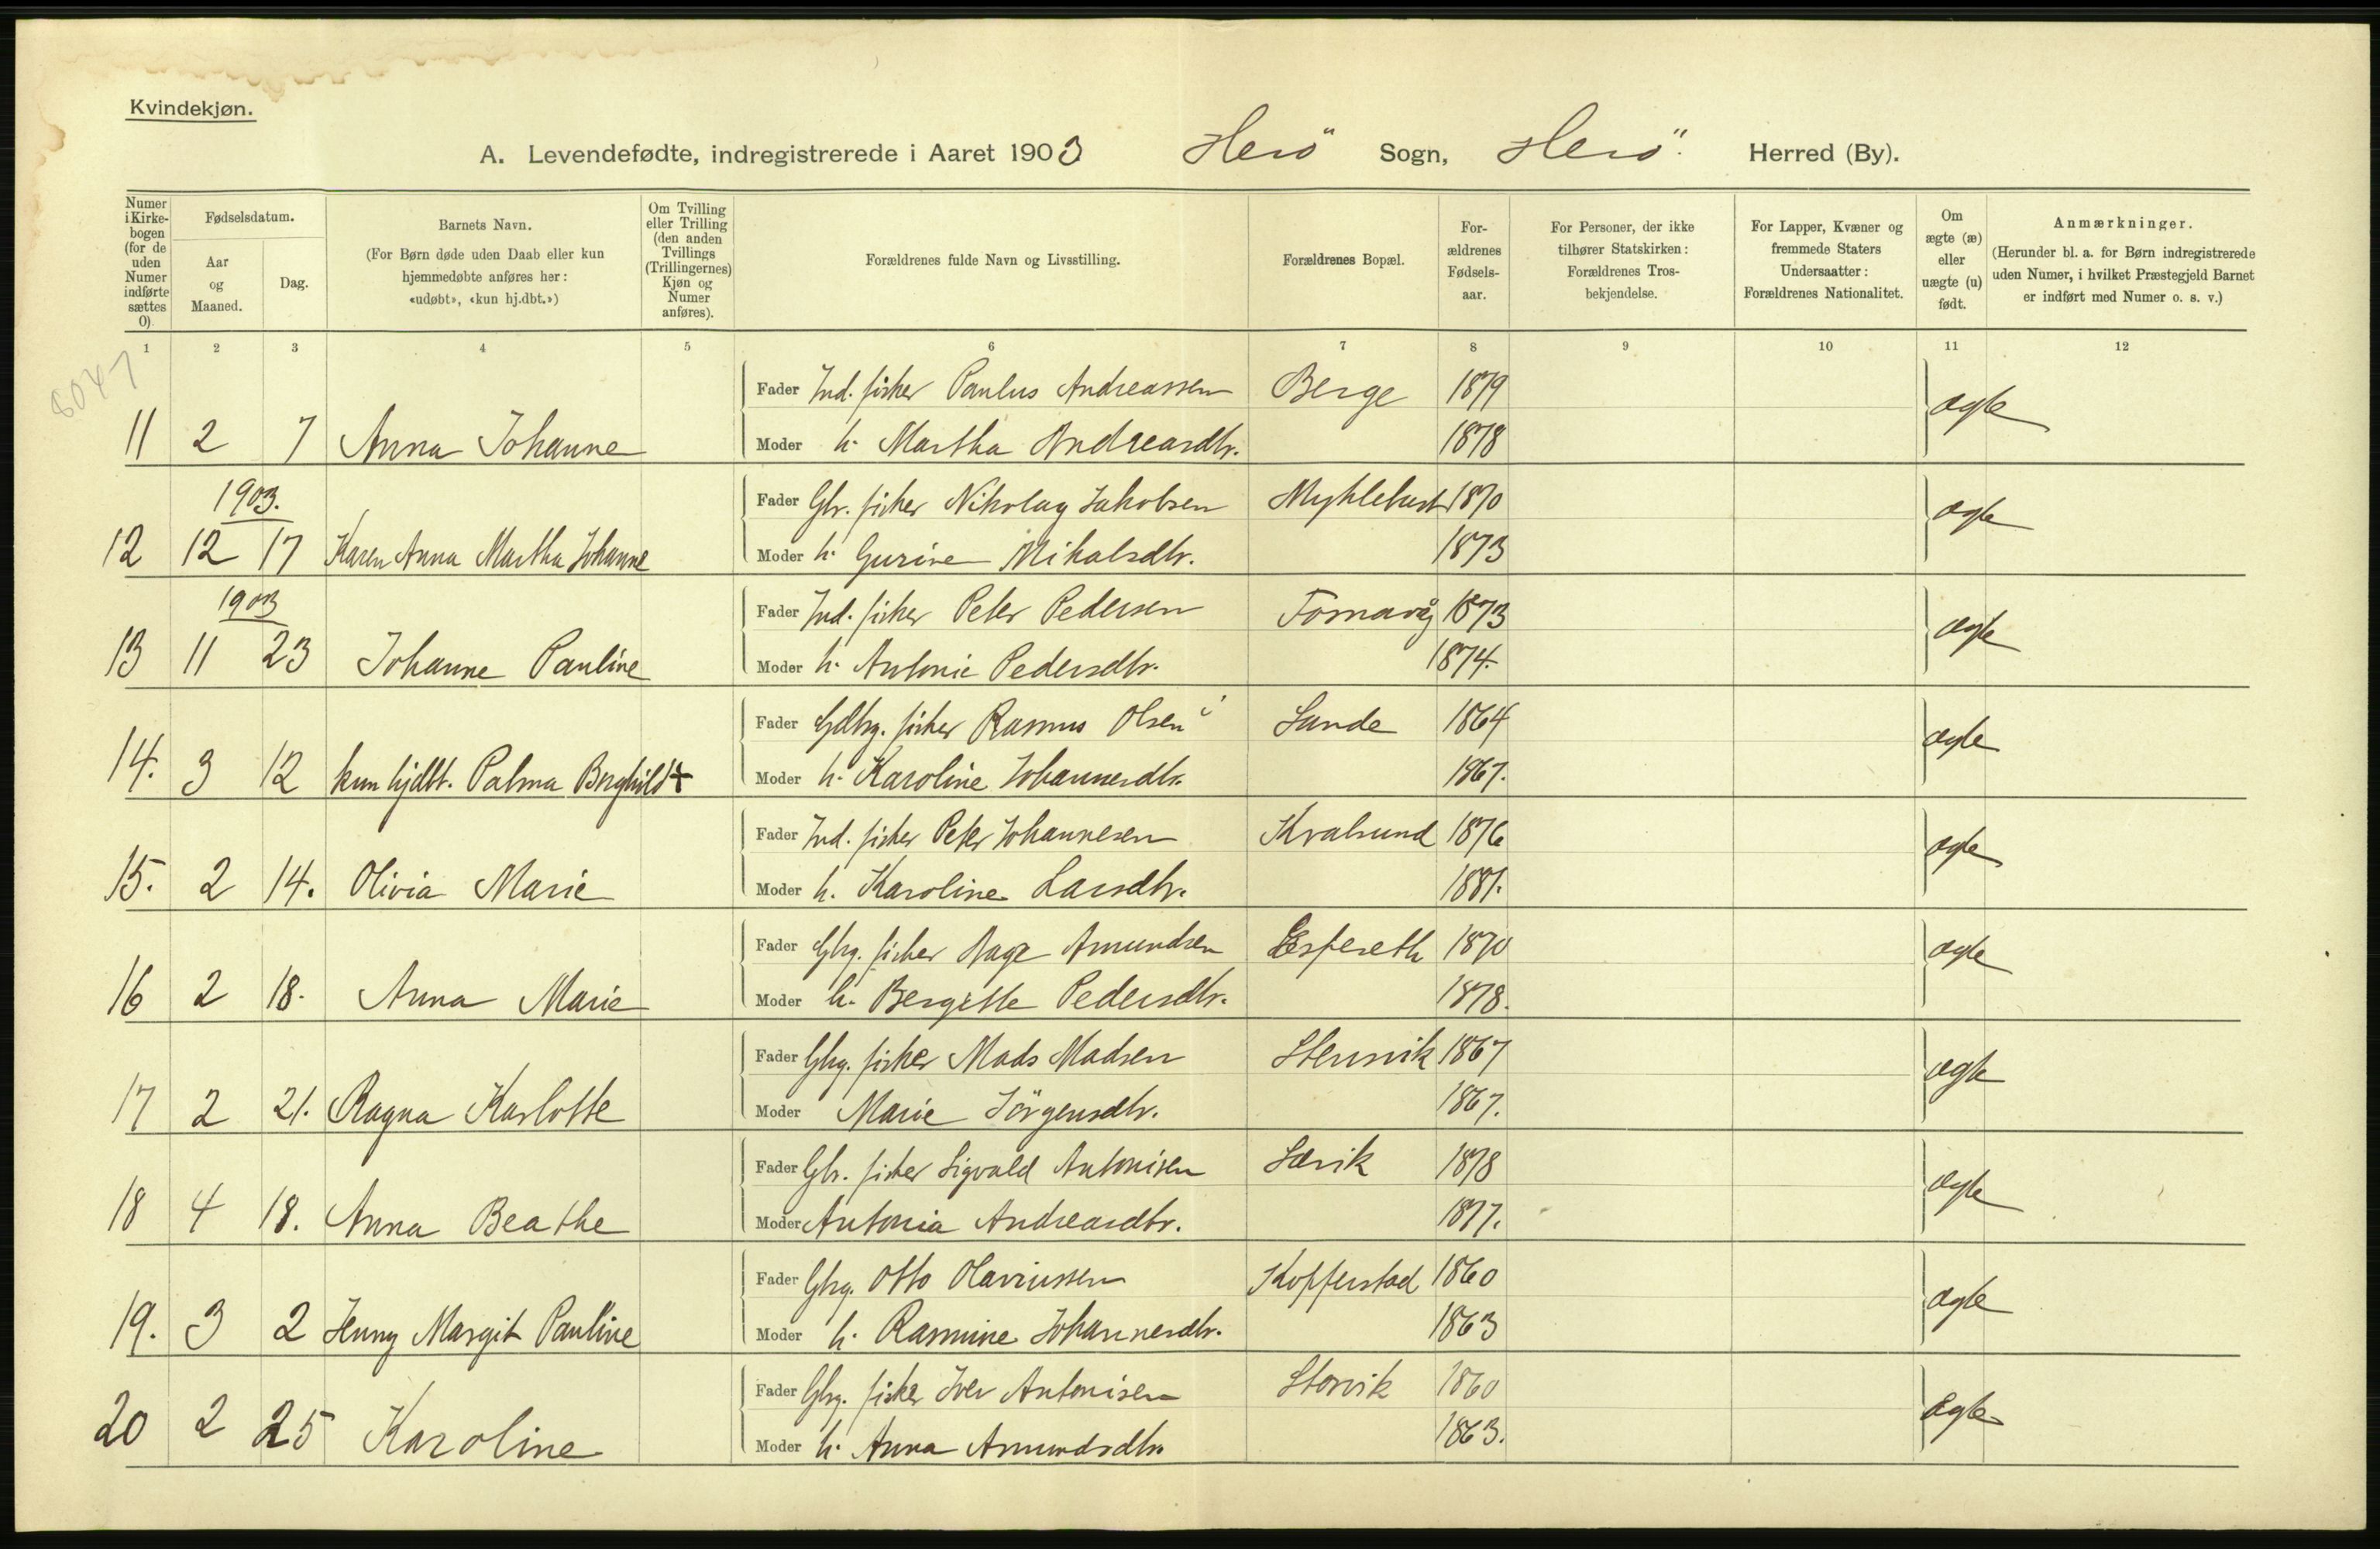 Kvindekjøn.
A. Levendefødte, indregistrerede i Aaret 1903 Herö Sogn, Herö Herred (By).
Numer i Kirke-bogen (for de uden Numer indførte sættes 0).
Fødselsdatum.
Aar og Maaned.
Dag.
Barnets Navn.
(For Børn døde uden Daab eller kun hjemmedøbte anføres her: «udøbt», «kun hj.dbt.»)
Om Tvilling eller Trilling (den anden Tvillings (Trillingernes) Kjøn og Numer anføres).
Forældrenes fulde Navn og Livsstilling.
Forældrenes Bopæl.
For-ældrenes Fødsels-aar.
For Personer, der ikke tilhører Statskirken: Forældrenes Tros-bekjendelse.
For Lapper, Kvæner og fremmede Staters Undersaatter: Forældrenes Nationalitet.
Om ægte (æ) eller uægte (u) født.
Anmærkninger.
(Herunder bl. a. for Børn indregistrerede uden Numer, i hvilket Præstegjeld Barnet er indført med Numer o. s. v.)
1 2 3 4 5 6 7 8 9 10 11 12
8047
Fader Ind. fisker Paulus Andreassen Berge 1879 ægte
11 2 7 Anna Johanne Moder h. Martha Andreasdtr. 1878
1903. Fader Gbr. fisker Nikolay Jakobsen Myklebust 1870 ægte
12 12 17 Karen Anna Martha Johanne Moder h. Gurine Mikalsdtr. 1873
1903 Fader Ind. fisker Peter Pedersen Fosnavåg 1873 ægte
13 11 23 Johanne Pauline Moder h. Antonie Pedersdtr. 1874.
Fader Gdbrg. fisker Rasmus Olsen Sande 1864 ægte
14. 3 12 kun hjdbt. Palma Borghild + Moder h. Karoline Johannesdtr. 1867.
Fader Ind. fisker Peter Johannesen Kvalsund 1876 ægte
15. 2 14. Olivia Marie Moder h. Karoline Larsdtr. 1881.
Fader Gbrg. fisker Aage Amundsen Espeseth 1870 ægte
16 2 18. Anna Marie Moder h. Bergitte Pedersdtr. 1878.
Fader Gbrg. fisker Mads Madsen Stensvik 1867 ægte
17 2 21. Ragna Karlotte Moder Marie Jörgensdtr. 1867.
Fader Gbr. fisker Sigvald Antonisen Sævik 1878 ægte
18 4 18. Anna Beathe Moder Antonia Andreasdtr. 1877.
Fader Gbrg. Otto Olaviussen Kopperstad 1860 ægte
19. 3 2 Jenny Margit Pauline Moder h. Rasmine Johannesdtr. 1863
Fader Gbrg. fisker Iver Antonisen Storvik 1860 ægte
20 2 25 Karoline Moder h. Anna Amundsdtr. 1863.